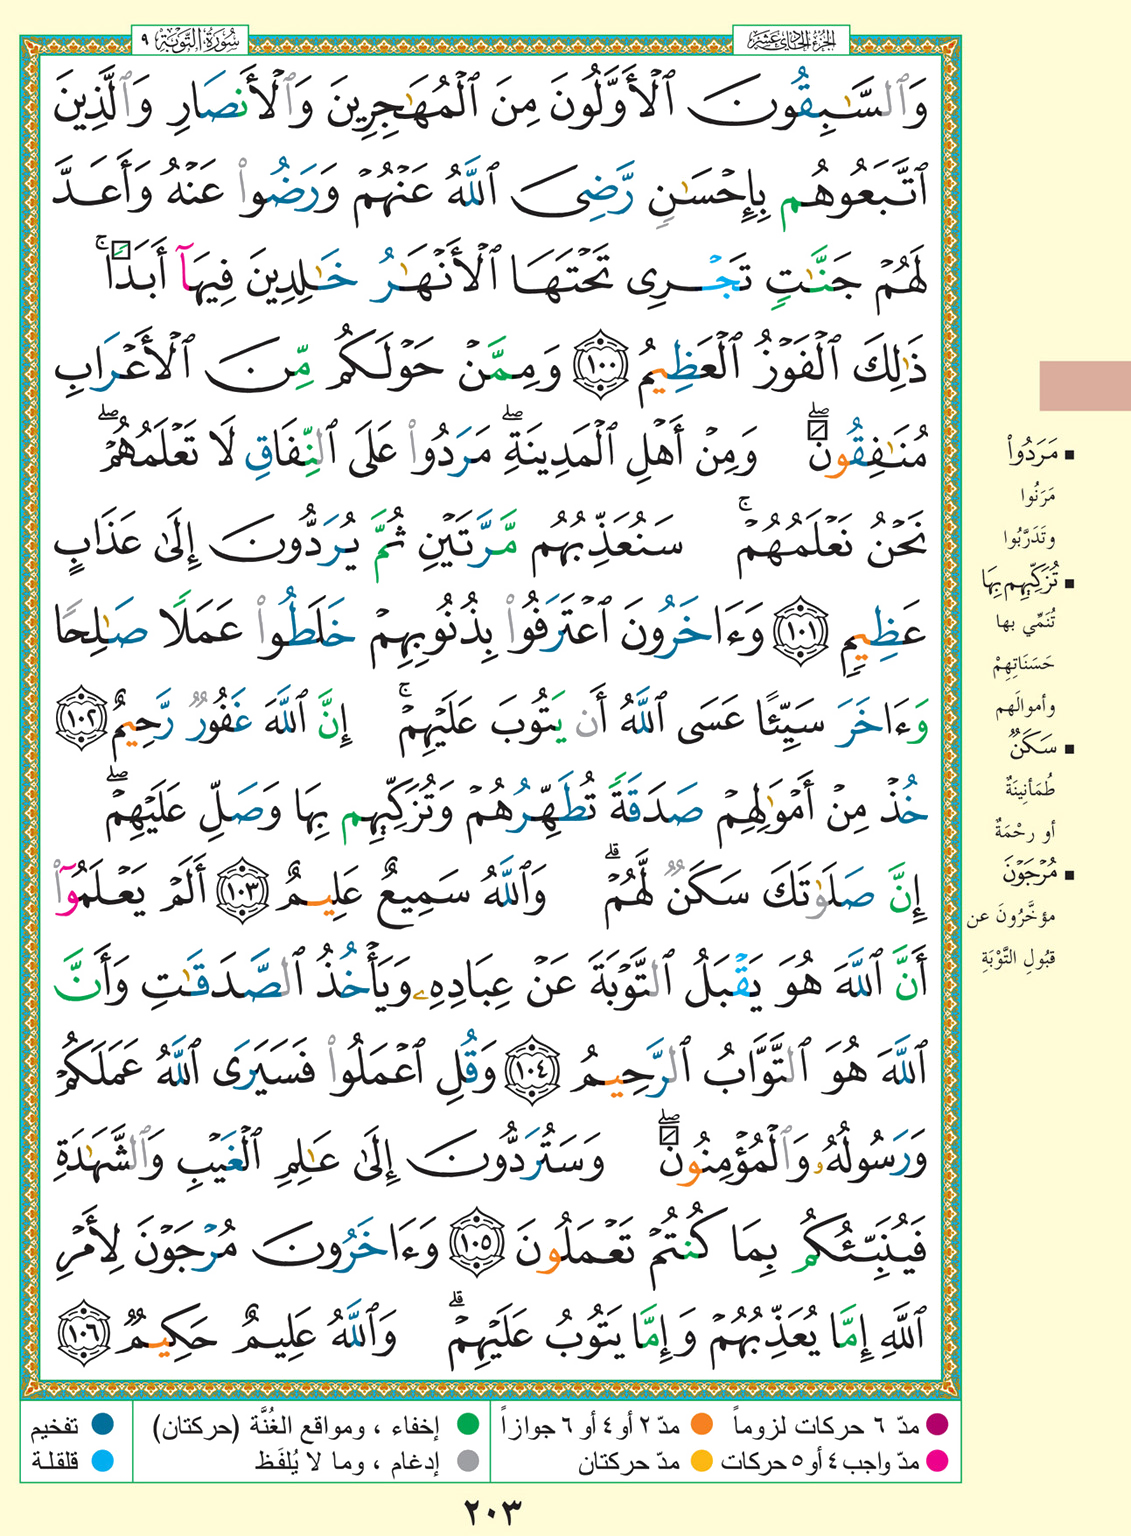 الجزء الحادي عشر
سُورَةُ التَّوْبَةِ ٩
وَٱلسَّٰبِقُونَ ٱلْأَوَّلُونَ مِنَ ٱلْمُهَٰجِرِينَ وَٱلْأَنصَارِ وَٱلَّذِينَ
ٱتَّبَعُوهُم بِإِحْسَٰنٍ رَّضِىَ ٱللَّهُ عَنْهُمْ وَرَضُوا۟ عَنْهُ وَأَعَدَّ
لَهُمْ جَنَّٰتٍ تَجْرِى تَحْتَهَا ٱلْأَنْهَٰرُ خَٰلِدِينَ فِيهَآ أَبَدًا ۚ
ذَٰلِكَ ٱلْفَوْزُ ٱلْعَظِيمُ ١٠٠ وَمِمَّنْ حَوْلَكُم مِّنَ ٱلْأَعْرَابِ
مُنَٰفِقُونَ ۖ وَمِنْ أَهْلِ ٱلْمَدِينَةِ ۖ مَرَدُوا۟ عَلَى ٱلنِّفَاقِ لَا تَعْلَمُهُمْ ۖ
نَحْنُ نَعْلَمُهُمْ ۚ سَنُعَذِّبُهُم مَّرَّتَيْنِ ثُمَّ يُرَدُّونَ إِلَىٰ عَذَابٍ
عَظِيمٍ ١٠١ وَءَاخَرُونَ ٱعْتَرَفُوا۟ بِذُنُوبِهِمْ خَلَطُوا۟ عَمَلًا صَٰلِحًا
وَءَاخَرَ سَيِّئًا عَسَى ٱللَّهُ أَن يَتُوبَ عَلَيْهِمْ ۚ إِنَّ ٱللَّهَ غَفُورٌ رَّحِيمٌ ١٠٢
خُذْ مِنْ أَمْوَٰلِهِمْ صَدَقَةً تُطَهِّرُهُمْ وَتُزَكِّيهِم بِهَا وَصَلِّ عَلَيْهِمْ ۖ
إِنَّ صَلَوٰتَكَ سَكَنٌ لَّهُمْ ۗ وَٱللَّهُ سَمِيعٌ عَلِيمٌ ١٠٣ أَلَمْ يَعْلَمُوٓا۟
أَنَّ ٱللَّهَ هُوَ يَقْبَلُ ٱلتَّوْبَةَ عَنْ عِبَادِهِۦ وَيَأْخُذُ ٱلصَّدَقَٰتِ وَأَنَّ
ٱللَّهَ هُوَ ٱلتَّوَّابُ ٱلرَّحِيمُ ١٠٤ وَقُلِ ٱعْمَلُوا۟ فَسَيَرَى ٱللَّهُ عَمَلَكُمْ
وَرَسُولُهُۥ وَٱلْمُؤْمِنُونَ ۖ وَسَتُرَدُّونَ إِلَىٰ عَٰلِمِ ٱلْغَيْبِ وَٱلشَّهَٰدَةِ
فَيُنَبِّئُكُم بِمَا كُنتُمْ تَعْمَلُونَ ١٠٥ وَءَاخَرُونَ مُرْجَوْنَ لِأَمْرِ
ٱللَّهِ إِمَّا يُعَذِّبُهُمْ وَإِمَّا يَتُوبُ عَلَيْهِمْ ۗ وَٱللَّهُ عَلِيمٌ حَكِيمٌ ١٠٦
■ مَرَدُوا۟
مَرَنُوا
وتَدَرَّبُوا
■ تُزَكِّيهِم بِهَا
تُنَمِّي بها
حَسَنَاتِهِمْ
وأموالَهم
■ سَكَنٌ
طُمَأنِينَةٌ
أو رحْمَةٌ
■ مُرْجَوْنَ
مؤخَّرُونَ عن
قبُولِ التَّوْبَةِ
مدّ ٦ حركات لزوماً
مدّ ٢ أو ٤ أو ٦ جوازاً
إخفاء ، ومواقع الغُنَّة (حركتان)
تفخيم
مدّ واجب ٤ أو ٥ حركات
مدّ حركتان
إدغام ، وما لا يُلفَظ
قلقلة
٢٠٣